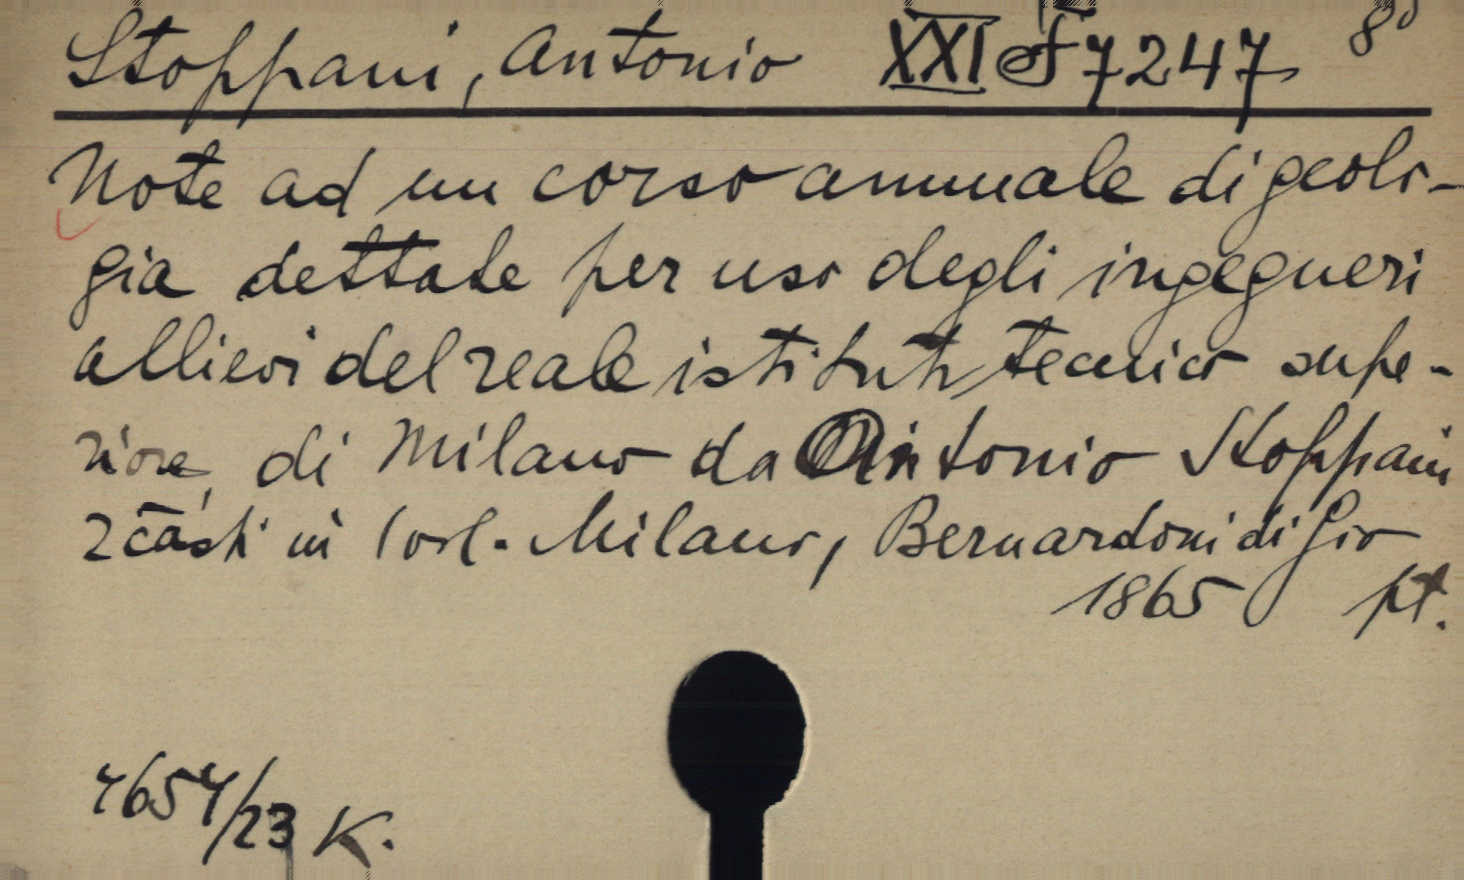 Stoppani, Antonio XXI f 7247 8°
Note ad un corso annuale di geolo-
gia dettate per uso degli ingegneri
allievi del reale istituto tecnico supe-
riore, di Milano da Antonio Stoppani
2 části in 1 vol. Milano, Bernardoni di Gio
1865 pt.
/23 K.